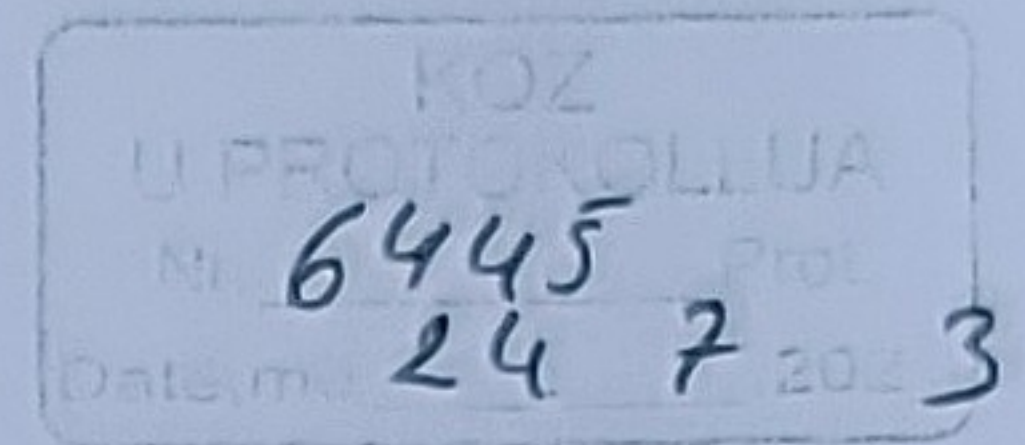 KOZ
U PROTOKOLLUA
Nr. 6445 Prot
Datë, m. 24 7 202 3